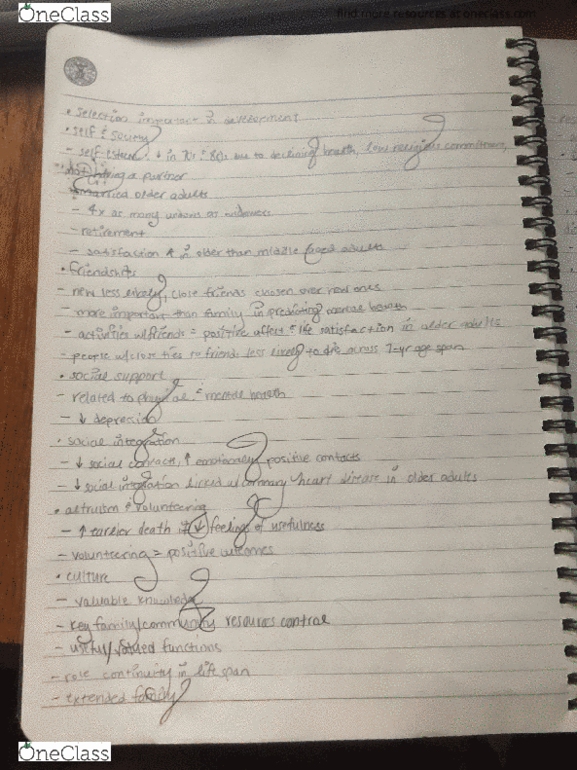 OneClass
find more resources at oneclass.com
• selection important in development
• self & society
- self-esteem: ↓ in 70s & 80s due to declining health, low religious commitment,
not having a partner
married older adults
- 4x as many widows as widowers
- retirement
- satisfaction ↑ in older than middle aged adults
• friendships
- new less likely, close friends chosen over new ones
- more important than family in predicting mental health
- activities w/friends = positive affect & life satisfaction in older adults
- people w/close ties to friends less likely to die across 7-yr age span
• social support
- related to physical & mental health
- ↓ depression
• social integration
- ↓ social contacts, ↑ emotionally positive contacts
- ↓ social integration linked w/coronary heart disease in older adults
• altruism & volunteering
- ↑ earlier death if ↓ feelings of usefulness
- volunteering = positive outcomes
• culture
- valuable knowledge
- key family/community resources control
- useful/valued functions
- role continuity in life span
- extended family
OneClass